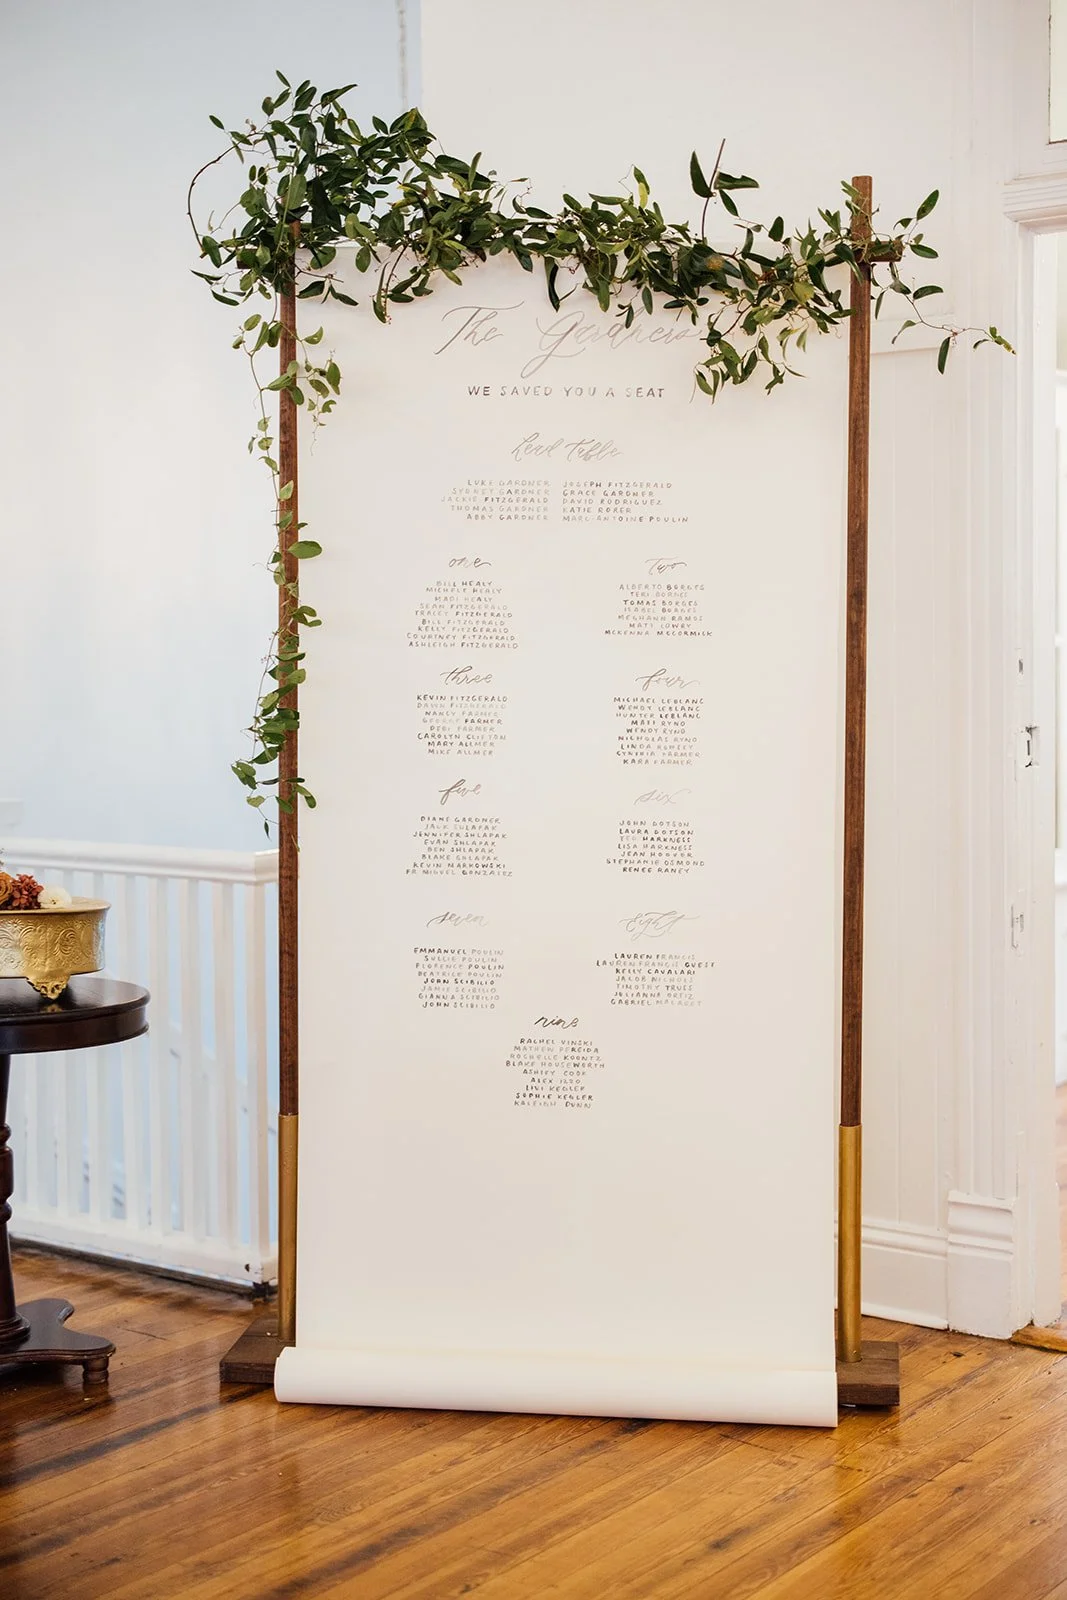 The Gardners
WE SAVED YOU A SEAT
head table
LUKE GARDNER
SYDNEY GARDNER
JACKIE FITZGERALD
THOMAS GARDNER
ABBY GARDNER
JOSEPH FITZGERALD
GRACE GARDNER
DAVID RODRIGUEZ
KATIE RORER
MARC-ANTOINE POULIN
one
BILL HEALY
MICHELE HEALY
MADI HEALY
SEAN FITZGERALD
TRACEY FITZGERALD
BILL FITZGERALD
KELLY FITZGERALD
COURTNEY FITZGERALD
ASHLEIGH FITZGERALD
Two
ALBERTO BORGES
TERI BORGES
TOMAS BORGES
ISABEL BORGES
MEGHANN RAMOS
MATT LOWRY
MCKENNA MCCORMICK
three
KEVIN FITZGERALD
DAWN FITZGERALD
NANCY FARMER
GEORGE FARMER
DEBI FARMER
CAROLYN CLIFTON
MARY ALLMER
MIKE ALLMER
four
MICHAEL LEBLANC
WENDY LEBLANC
HUNTER LEBLANC
MATT RYNO
WENDY RYNO
NICHOLAS RYNO
LINDA
CYNTHIA FARMER
KARA FARMER
five
DIANE GARDNER
JACK SHLAPAK
JENNIFER SHLAPAK
EVAN SHLAPAK
BEN SHLAPAK
BLAKE SHLAPAK
KEVIN MARKOWSKI
FR MIGUEL GONZALEZ
six
JOHN DOTSON
LAURA DOTSON
HARKNESS
LISA HARKNESS
JEAN HOOVER
STEPHANIE OSMOND
RENEE RANEY
seven
EMMANUEL POULIN
SYLVIE POULIN
FLORENCE POULIN
BEATRICE POULIN
JOHN SCIBILIO
JAMIE SCIBILIO
GIANNA SCIBILIO
JOHN SCIBILIO
Eight
LAUREN FRANCIS
LAUREN FRANCIS GUEST
KELLY CAVALARI
JACOB NICHOLS
TIMOTHY TRUSS
JULIANNA ORTIZ
GABRIEL MALARET
nine
RACHEL VINSKI
MATHEW PEREIDA
ROCHELLE KOONTZ
BLAKE HOUSEWORTH
ASHLEY COOK
ALEX IZZO
LIVI KEGLER
SOPHIE KEGLER
KALEIGH DUNN